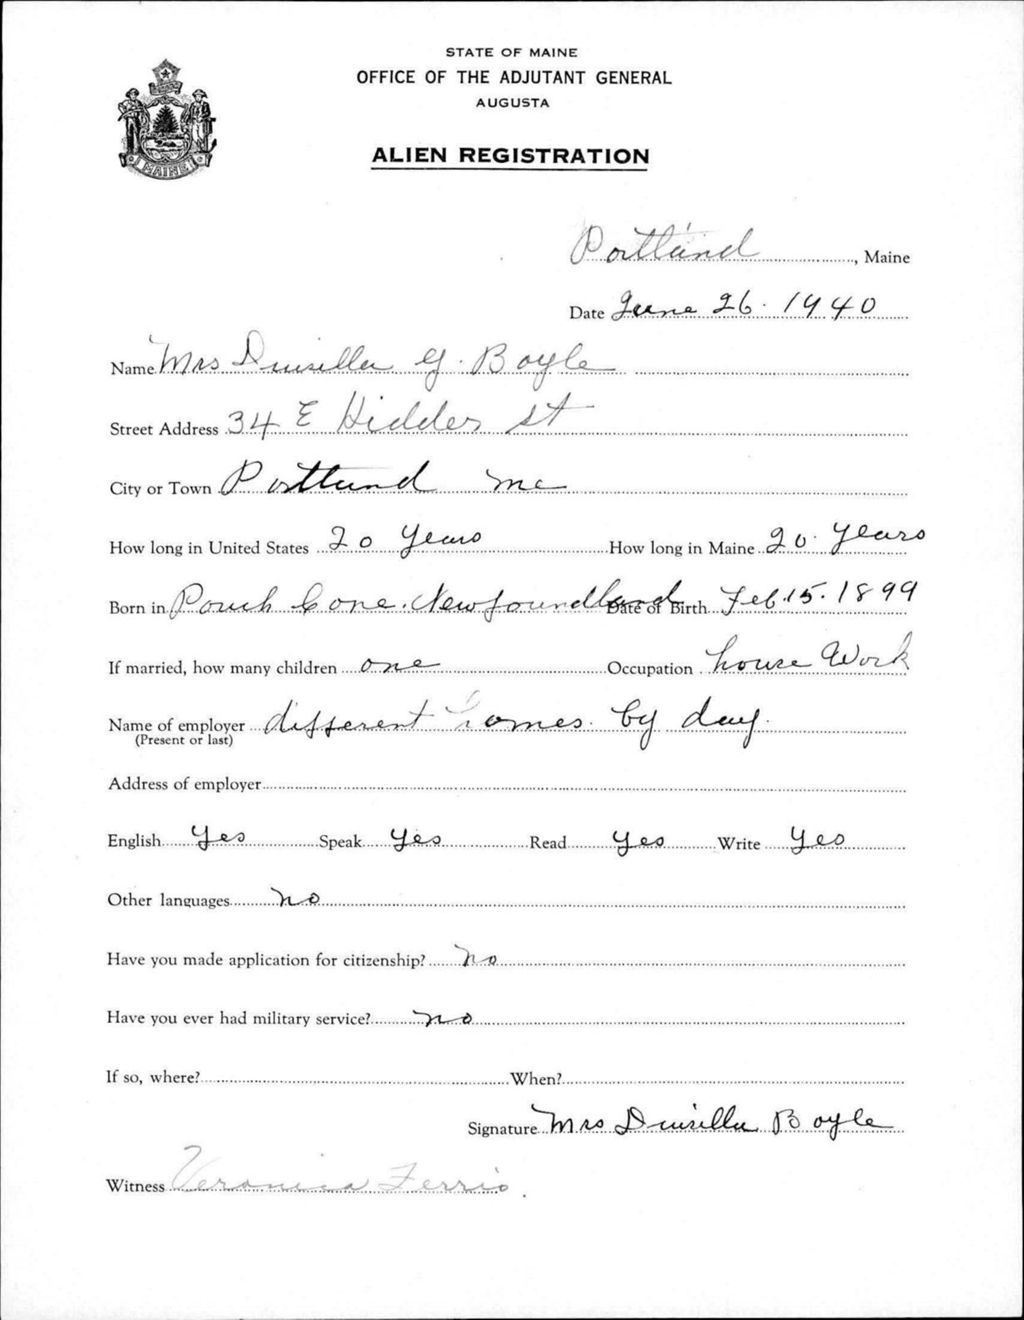 STATE OF MAINE
OFFICE OF THE ADJUTANT GENERAL
AUGUSTA
ALIEN REGISTRATION
MAINE
Portland, Maine
Date June 26. 1940
Name Mrs Drusilla G. Boyle
Street Address 34 E Kidder St
City or Town Portland Me
How long in United States 20 Years How long in Maine 20 Years
Born in Pouch Cone. Newfoundland Date of Birth Feb. 15. 1899
If married, how many children one Occupation house Work
Name of employer different homes. by day.
(Present or last)
Address of employer
English Yes Speak Yes Read Yes Write Yes
Other languages no
Have you made application for citizenship? no
Have you ever had military service? no
If so, where? When?
Signature Mrs Drusilla Boyle
Witness Veronica Ferrio.